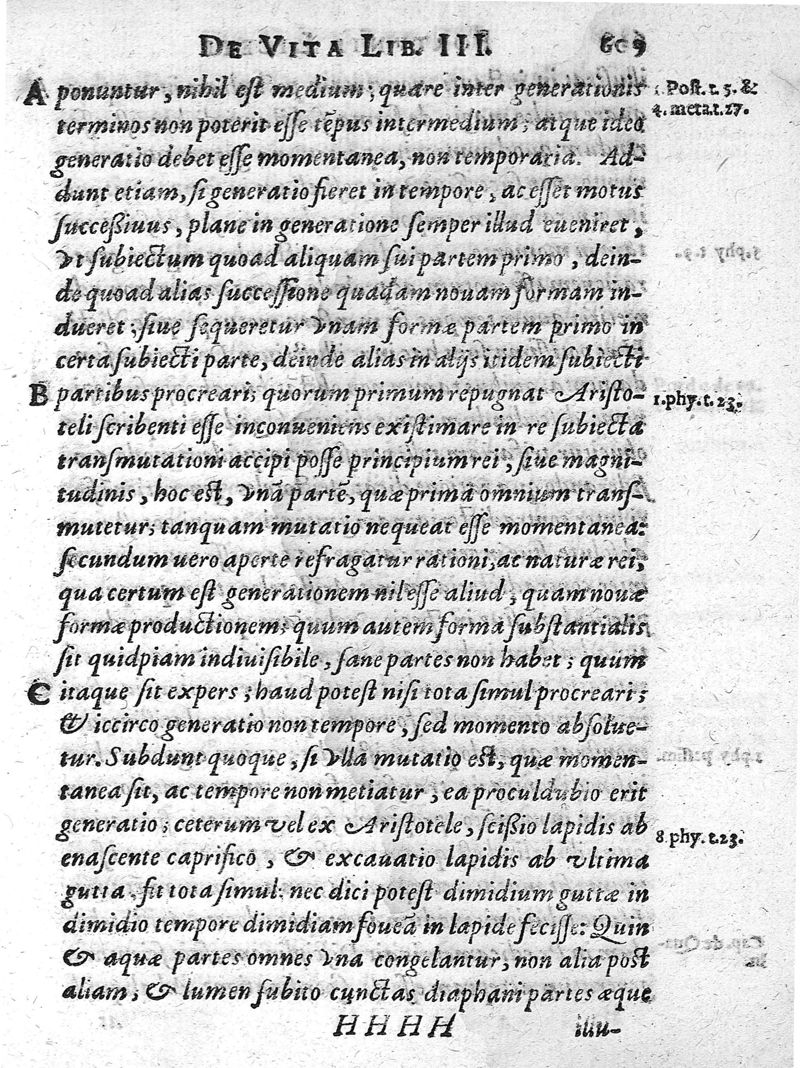 DE VITA LIB. III. 609
A ponuntur, nihil est medium; quare inter generationis 1. Post. t. 5. &
terminos non poterit esse tẽpus intermedium; atque ideo 4. meta.t.27.
generatio debet esse momentanea, non temporaria. Ad-
dunt etiam, si generatio fieret in tempore, ac esset motus
successiuus, plane in generatione semper illud eueniret,
vt subiectum quoad aliquam sui partem primo, dein-
de quoad alias successione quadam nouam formam in-
dueret; siue sequeretur vnam formæ partem primo in
certa subiecti parte, deinde alias in alijs itidem subiecti
B partibus procreari; quorum primum repugnat Aristo- 1.phy.t.23.
teli scribenti esse inconueniens existimare in re subiecta
transmutationi accipi posse principium rei, siue magni-
tudinis, hoc est, vnã partẽ, quæ prima omnium trans-
mutetur; tanquam mutatio nequeat esse momentanea:
secundum uero aperte refragatur rationi, ac naturæ rei;
qua certum est generationem nil esse aliud, quam nouæ
formæ productionem; quum autem forma substantialis
sit quidpiam indiuisibile, sane partes non habet; quum
C itaque sit expers; haud potest nisi tota simul procreari;
& iccirco generatio non tempore, sed momento absolue-
tur. Subdunt quoque, si vlla mutatio est, quæ momen-
tanea sit, ac tempore non metiatur, ea proculdubio erit
generatio; ceterum vel ex Aristotele, scissio lapidis ab 8 phy. t.23.
enascente caprifico, & excauatio lapidis ab vltima
gutta, fit tota simul; nec dici potest dimidium guttæ in
dimidio tempore dimidiam foueã in lapide fecisse: Quin
& aquæ partes omnes vna congelantur, non alia post
aliam; & lumen subito cunctas diaphani partes æque
HHHH illu-